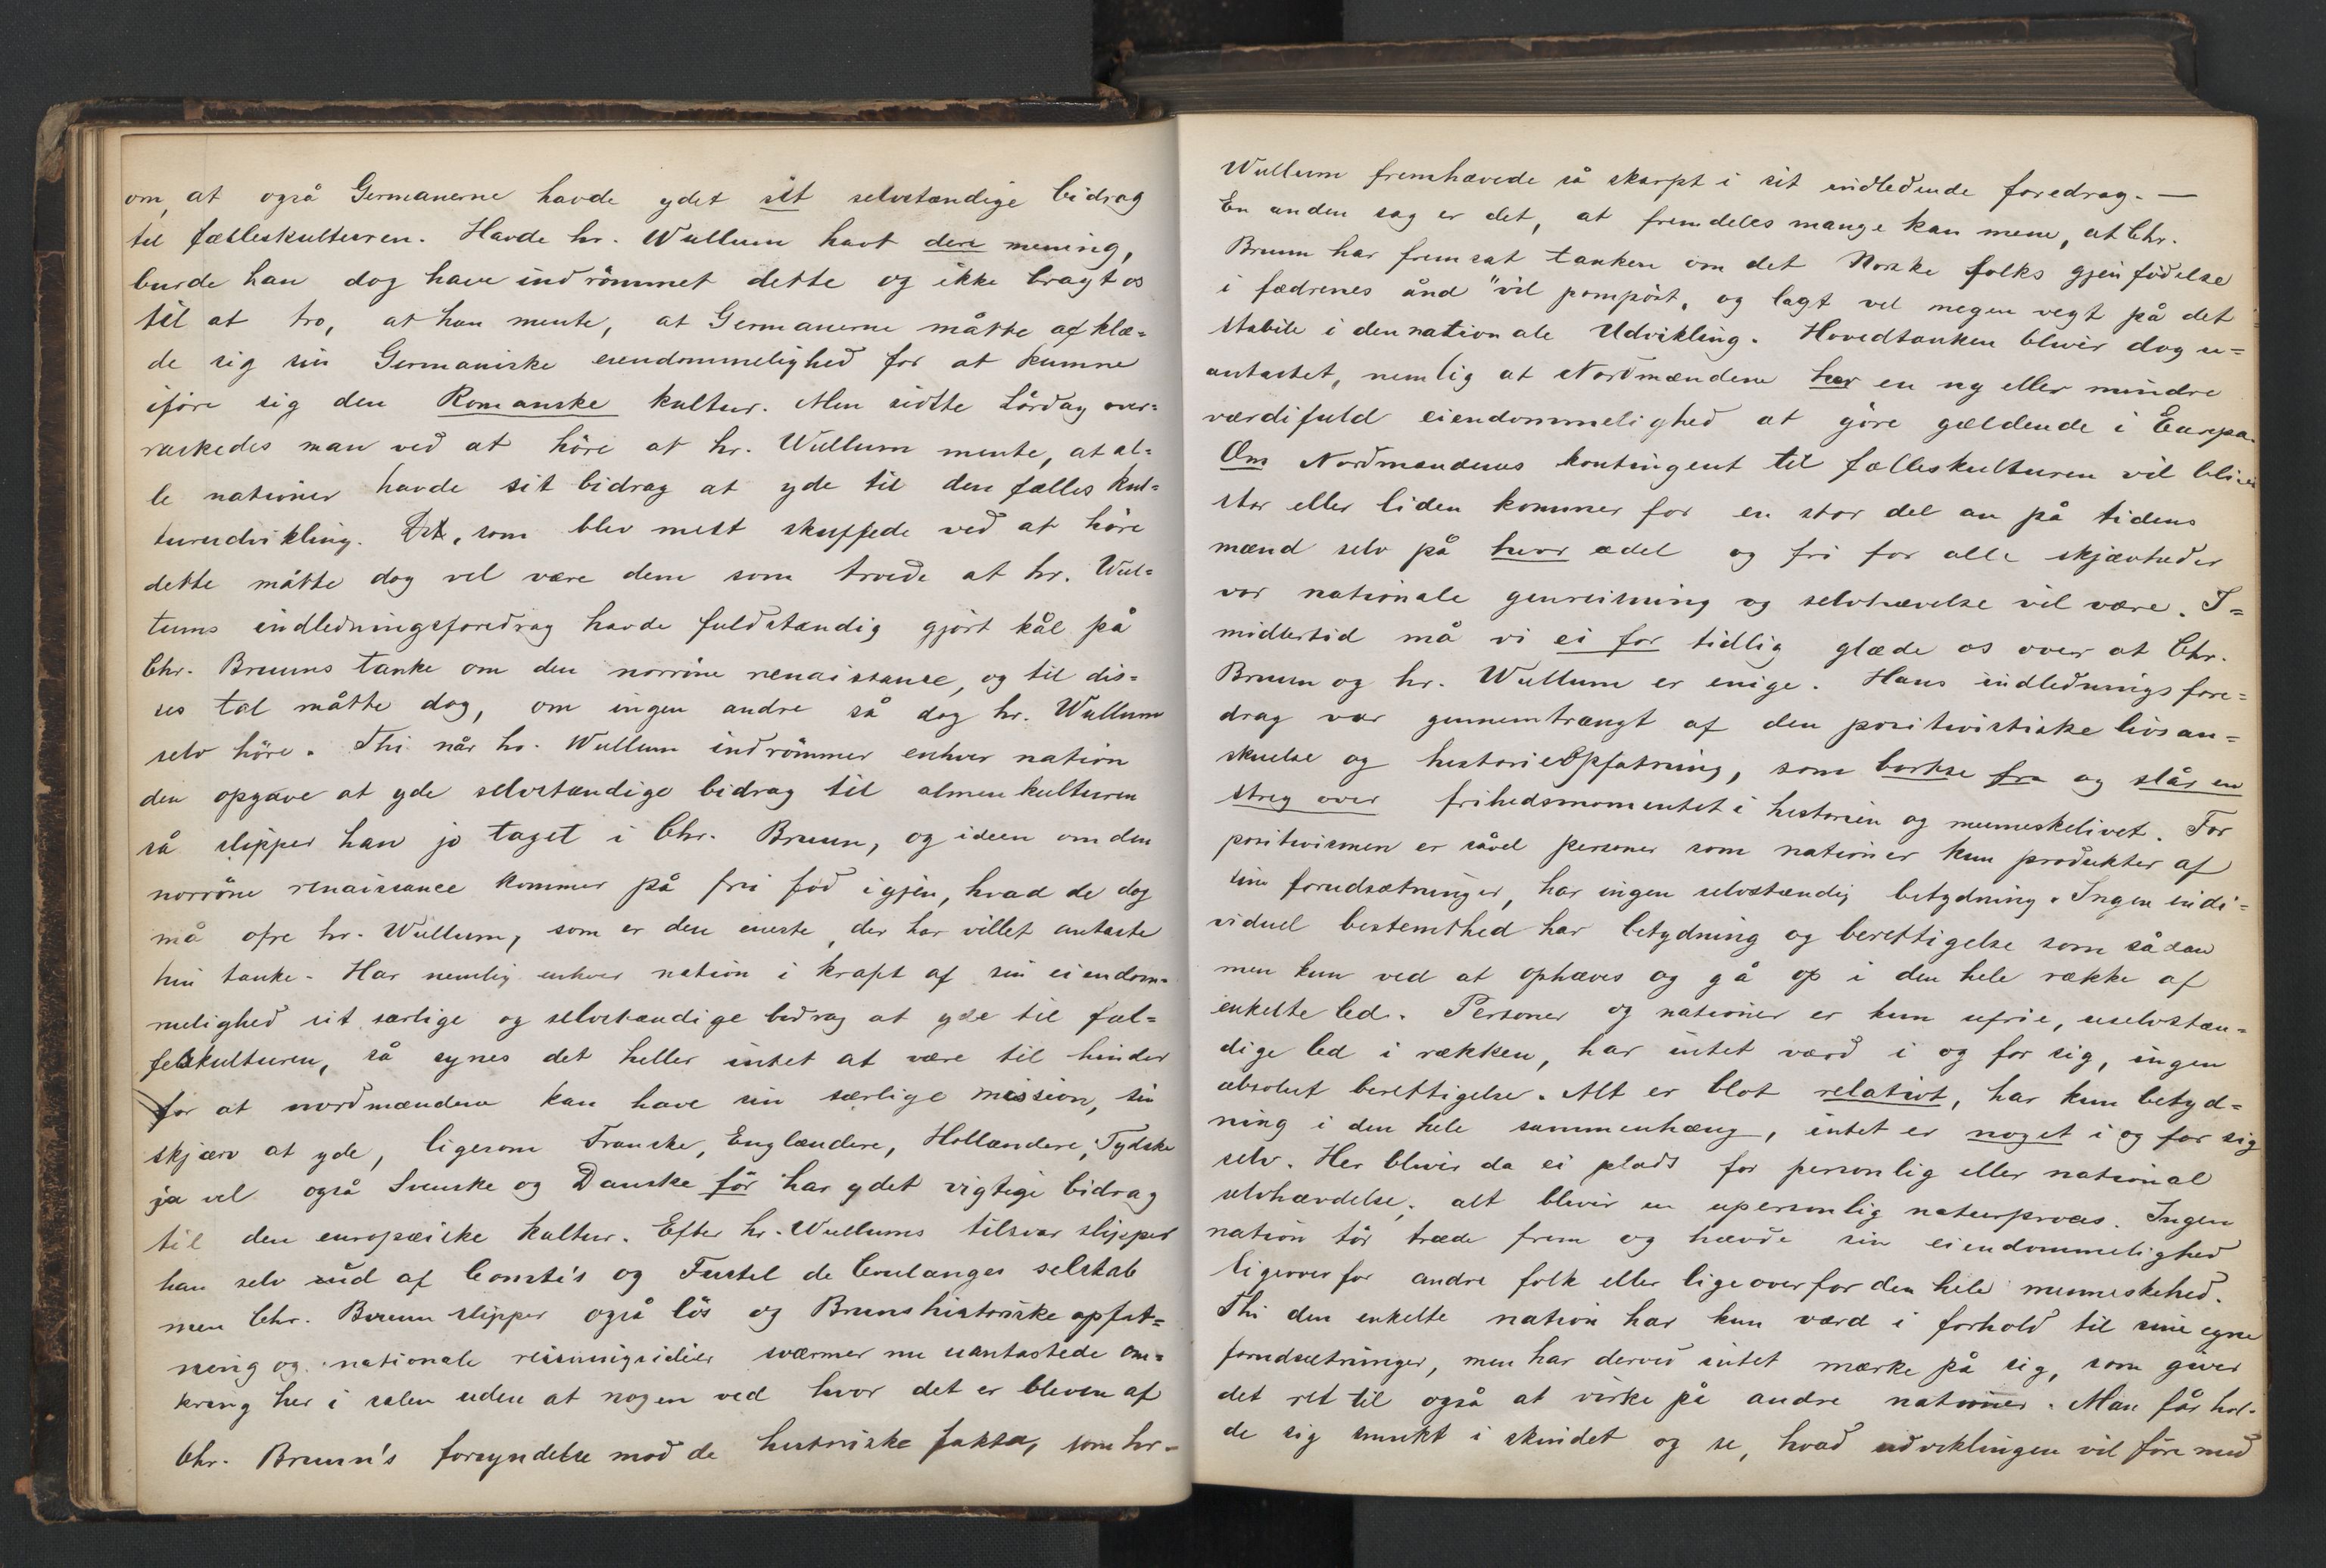 om, at også Germanerne havde ydet sit selvstændige bidrag
til fælleskulturen. Havde hr. Wullum havt den mening,
burde han dog have indrömmet dette og ikke bragt os
til at tro, at han mente, at Germanerne måtte afklæ=
de sig sin Germaniske eiendommelighed for at kunne
iföre sig den Romanske kultur. Men sidste Lördag over=
raskedes man ved at höre at hr. Wullum mente, at al=
le nationer havde sit bidrag at yde til den fælles kul=
turudvikling. De, som blev mest skuffede ved at höre
dette måtte dog vel være dem som troede at hr. Wul=
lums indledningsforedrag havde fuldstændig gjört kål på
Chr. Bruuns tanke om den norröne renaissance, og til dis=
ses tal måtte dog, om ingen andre så dog hr. Wullum
selv höre. Thi når hr. Wullum indrömmer enhver nation
den opgave at yde selvstændige bidrag til almenkulturen
så slipper han jo taget i Chr. Bruun, og ideen om den
norröne renaissance kommer på fri fod igjen, hvad de dog
må ofre hr. Wullum, som er den eneste, der har villet antaste
hin tanke. Har nemlig enhver nation i kraft af sin eiendom=
melighed sit særlige og selvstændige bidrag at yde til fæl=
felskulturen, så synes det heller intet at være til hinder
for at nordmændene kan have sin særlige mission, sin
skjærv at yde, ligesom Franske, Englændere, Hollændere, Tydske
ja vel også Svenske og Danske för har ydet vigtige bidrag
til den europæiske kultur. Efter hr. Wullums tilsvar slipper
han selv ud af Comte's og Fustel de Coulanges selskab
men Chr. Bruun slipper også lös og Bruns historiske opfat=
ning og nationale reisningsidéer sværmer nu uantastede om=
kring her i salen uden at nogen ved hvor det er bleven af
Chr. Bruun's forsyndelse mod de historiske fakta, som hr.
Wullum fremhævede så skarpt i sit indledende foredrag. —
En anden sag er det, at fremdeles mange kan mene, at Chr.
Bruun har fremsat tanken om det Norske folks gjenfödelse
i fædrenes ånd "vel pompöst, og lagt vel megen vegt på det
stabile i den nationale Udvikling. Hovedtanken bliver dog u=
antastet, nemlig at Nordmændene har en ny eller mindre
værdifuld eiendommelighed at göre gældende i Europa.
Om Nordmændenes kontingent til fælleskulturen vil blive
stor eller liden kommer for en stor del an på tidens
mænd selv på hvor ædel og fri for alle skjævheder
vor nationale genreisning og selvhævelse vil være. I=
midlertid må vi ei for tidlig glæde os over at Chr.
Bruun og hr. Wullum er enige. Hans indlednings fore=
drag var gennemtrængt af den positivistiske livsan=
skuelse og historieopfatning, som bortse fra og slår en
streg over frihedsmomentet i historien og menneskelivet. For
positivismen er såvel personer som nationer kun produkter af
sine forudsætninger, har ingen selvstændig betydning. Ingen indi=
viduel bestemthed har betydning og berettigelse som sådan
men kun ved at ophæves og gå op i den hele række af
enkelte led. Personer og nationer er kun ufrie, uselvstæn=
dige led i rækken, har intet værd i og for sig, ingen
absolut berettigelse. Alt er blot relativt, har kun betyd=
ning i den hele sammenhæng, intet er noget i og for sig
selv. Her bliver da ei plads for personlig eller national
selvhævdelse; alt bliver en upersonlig naturproces. Ingen
nation tör træde frem og hævde sin eiendommelighed
ligeoverfor andre folk eller ligeoverfor den hele menneskehed.
Thi den enkelte nation har kun værd i forhold til sine egne
forudsætninger, men har derved intet mærke på sig, som giver
det ret til også at virke på andre nationer. Man får hol=
de sig smukt i skindet og se, hvad udviklingen vil före med